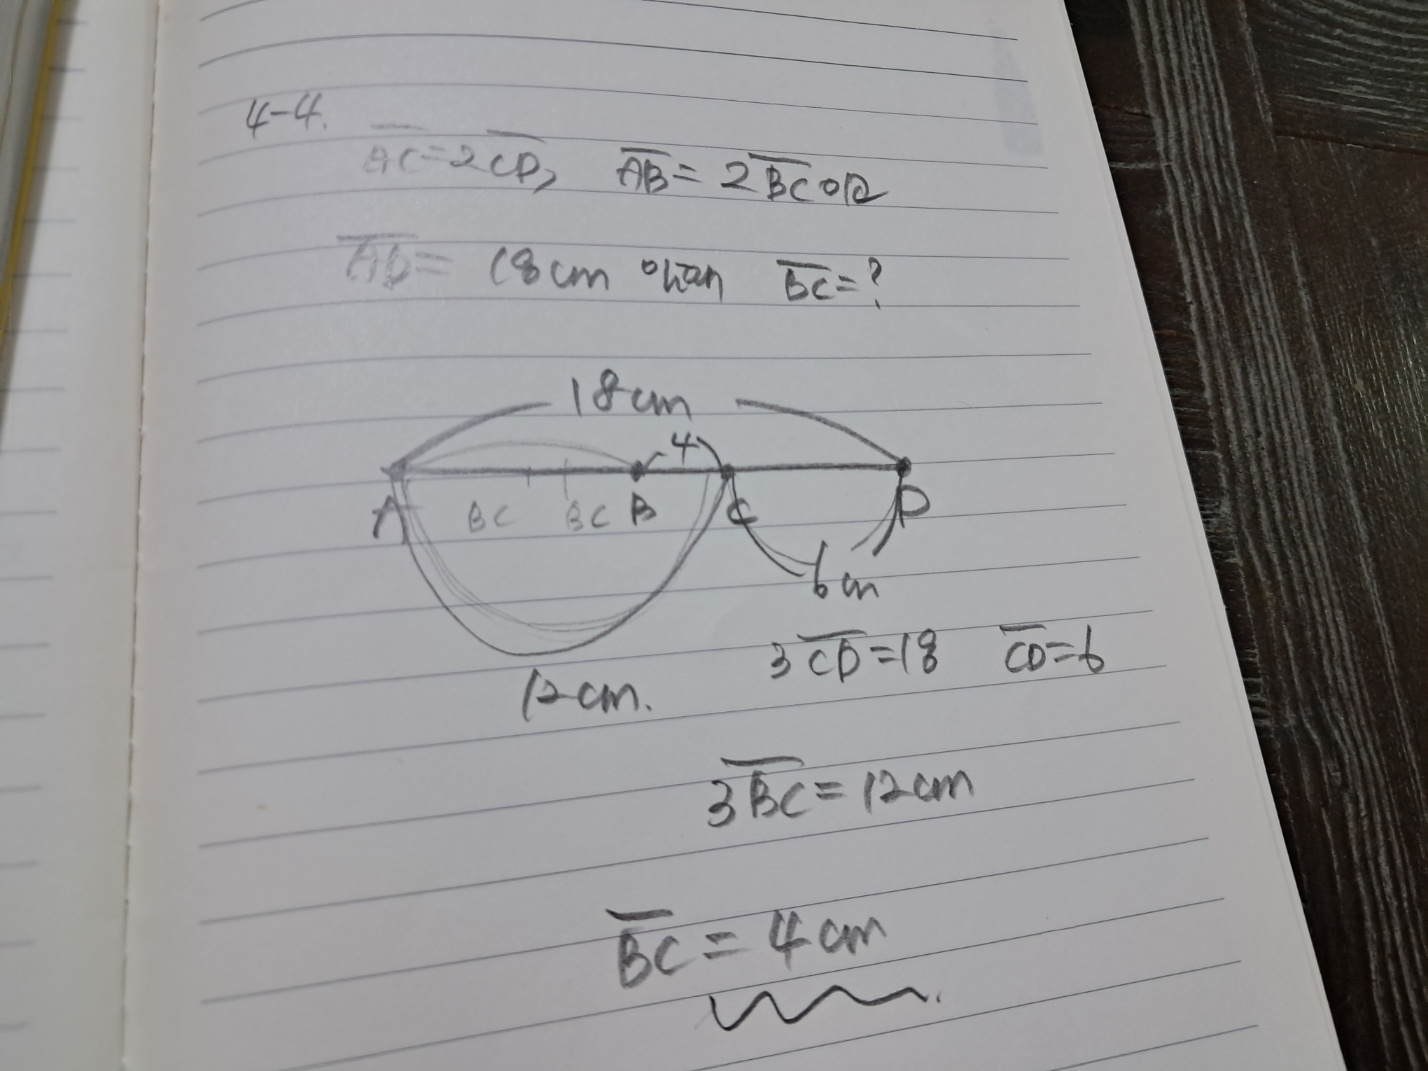 4-4.
AC=2CD, AB=2BC이고
AD= 18cm 일 때 BC=?
18cm
4
A BC BC B C D
6cm
12cm.
3CD=18 CD=6
3BC=12cm
BC=4cm